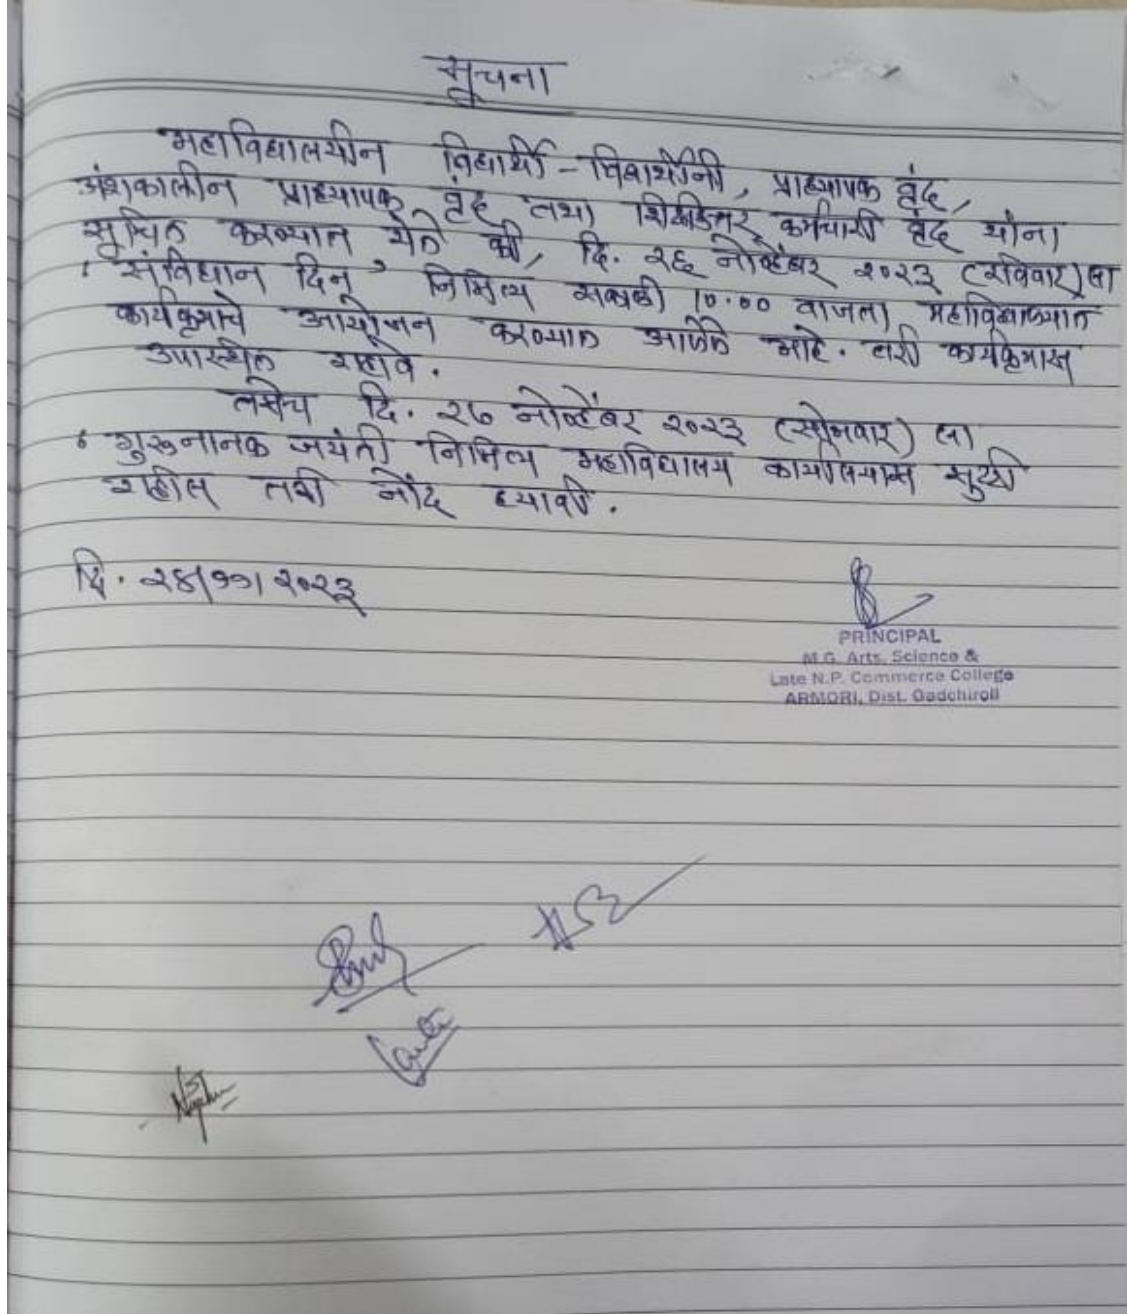 सूचना
महाविद्यालयीन विद्यार्थी - विद्यार्थीनी, प्राध्यापक वृंद,
अंशकालीन प्राध्यापक वृंद तथा शिक्षकेत्तर कर्मचारी वृंद यांना
सूचित करण्यात येते की, दि. २६ नोव्हेंबर २०२३ (रविवार) ला
'संविधान दिन' निमित्य सकाळी 10.00 वाजता महाविद्यालयात
कार्यक्रमाचे आयोजन करण्यात आलेले आहे. तरी कार्यक्रमास
उपस्थित राहावे.
तसेच दि. २७ नोव्हेंबर २०२३ (सोमवार) ला
'गुरुनानक जयंती निमित्य महाविद्यालय कार्यालयास सुट्टी
राहील तशी नोंद घ्यावी.
दि. २४/११/२०२३
PRINCIPAL
M.G. Arts, Science &
Late N.P. Commerce College
ARMORI, Dist. Gadchiroli